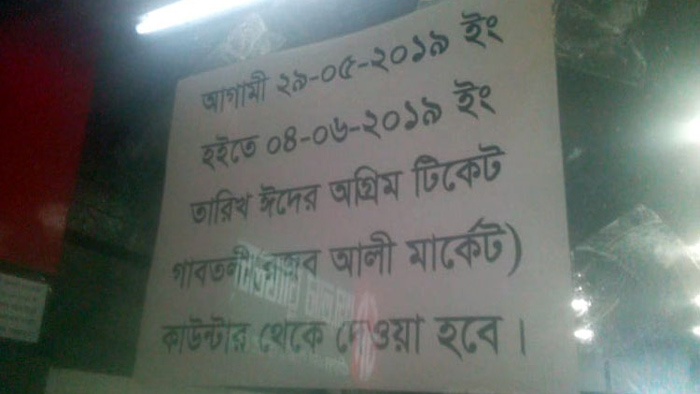 আগামী ২৯-০৫-২০১৯ ইং
হইতে ০৪-০৬-২০১৯ ইং
তারিখ ঈদের অগ্রিম টিকেট
গাবতলী আলী মার্কেট)
কাউন্টার থেকে দেওয়া হবে।